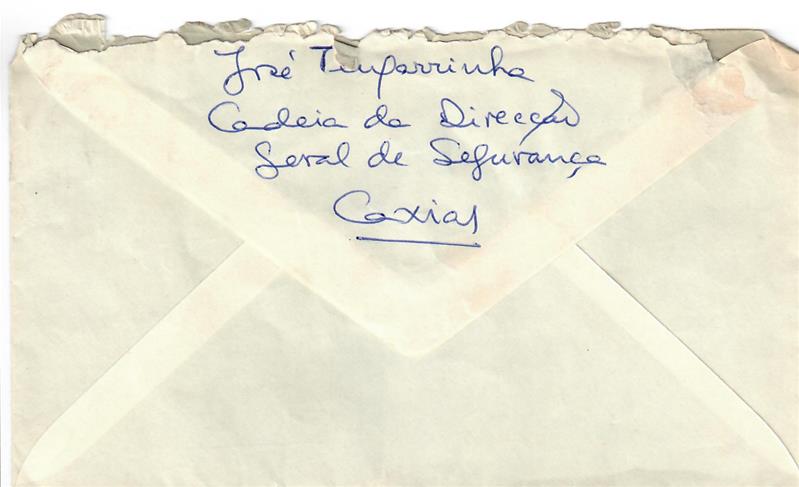 José Tengarrinha
Cadeia da Direcção
Geral de Segurança
Caxias